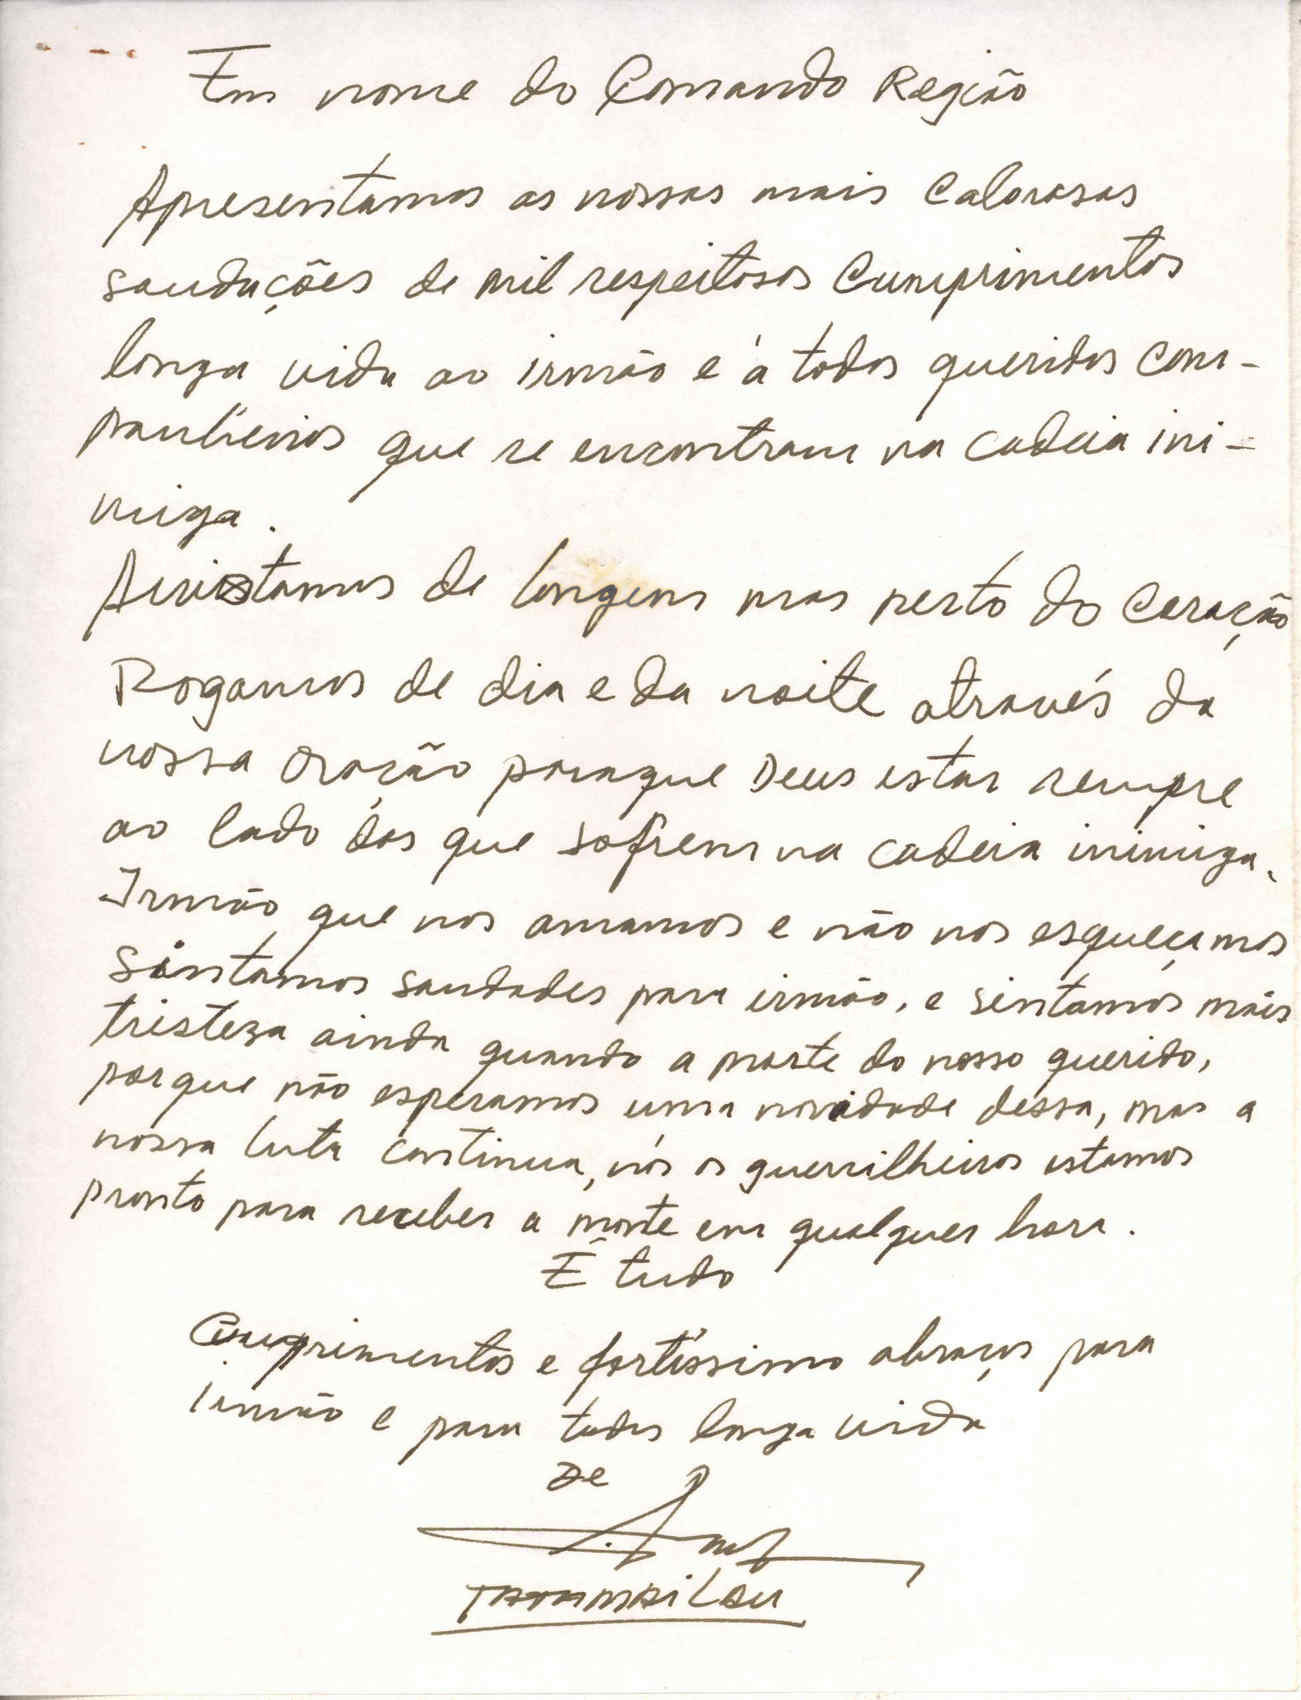 Em nome do Comando Região
Apresentamos as nossas mais calorosas
saudações de mil respeitosos cumprimentos
longa vida ao irmão e á todos queridos com-
panheiros que se encontram na cadeia ini-
miga.
Avistamos de longem mas perto do coração
Rogamos de dia e da noite através da
nossa oração paraque Deus estar sempre
ao lado dos que sofrem na cadeia inimiga.
Irmão que nos amamos e não nos esqueçamos
sintamos saudades para irmão, e sintamos máis
tristeza ainda quando a morte do nosso querido,
porque não esperamos uma novidade dessa, mas a
nossa luta continua, nós os guerrilheiros estamos
pronto para receber a morte em qualquer hora.
É tudo
Cumprimentos e fortíssimo abraços para
irmão e para todos longa vida
De